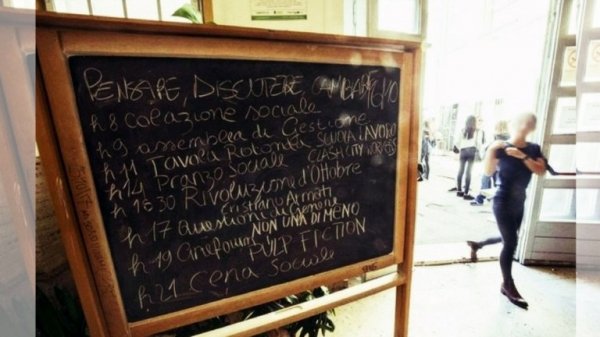 PENSARE, DISCUTERE, CAMBIARE
h 8 colazione sociale
h 9 assemblea di Gestione
h 11 Tavola Rotonda SCUOLA LAVORO
CLASH CITY WORKERS
h 14 Pranzo Sociale
h 15:30 Rivoluzione d'Ottobre
Cristiano Armati
h 17 Questioni di Genere
NON UNA DI MENO
h 19 Cineforum
PULP FICTION
h 21 Cena Sociale